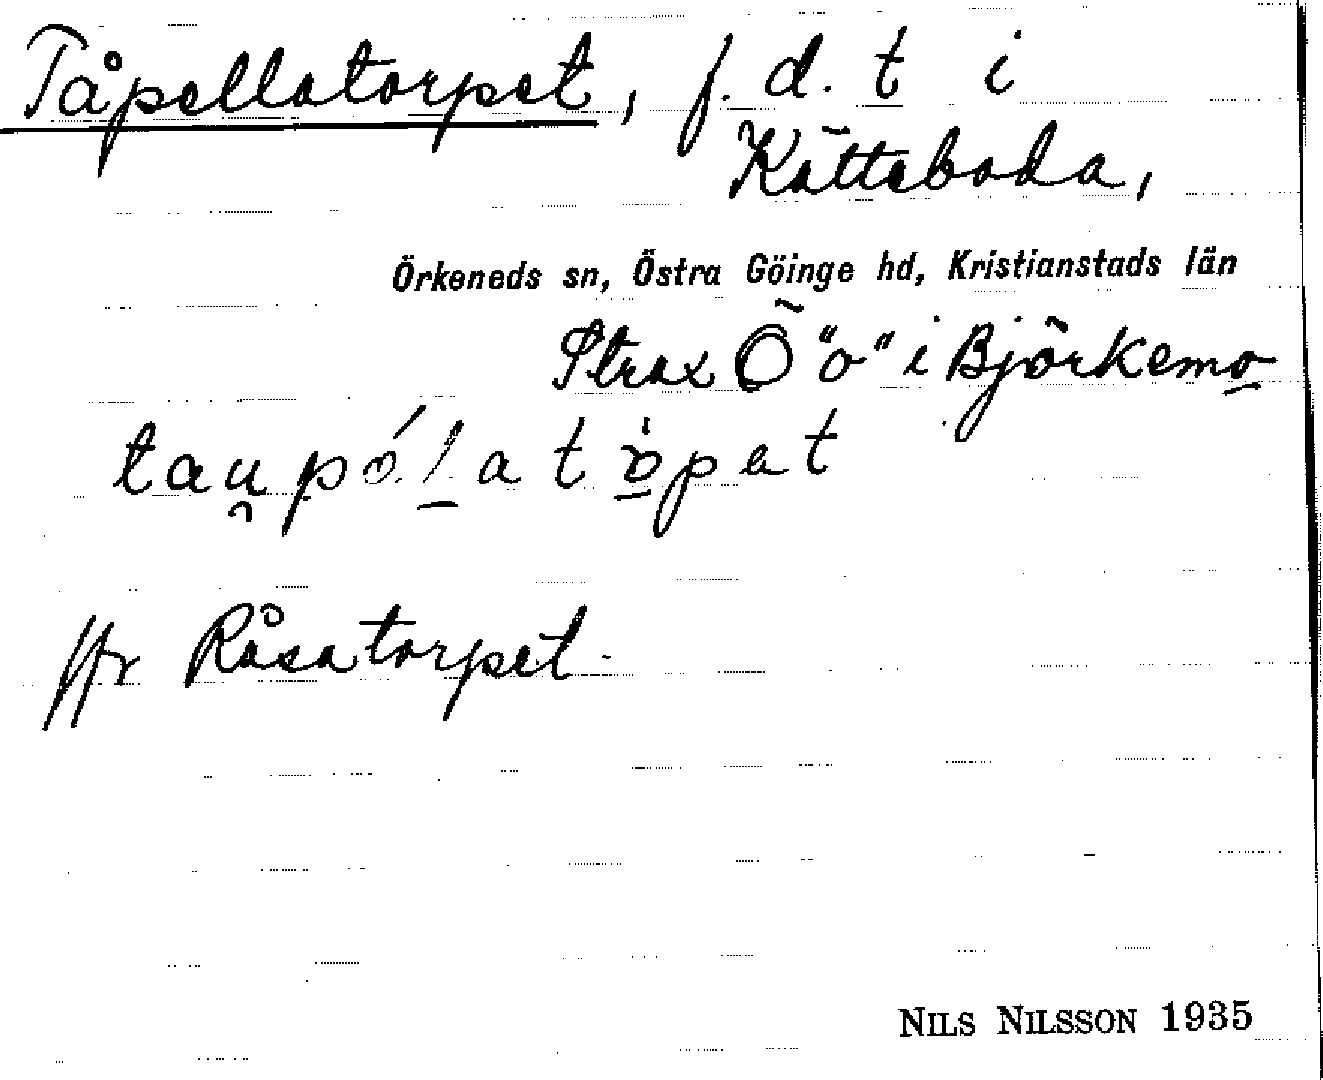 Tåpellatorpet, f. d. t i
Kätteboda,
Örkeneds sn, Östra Göinge hd, Kristianstads län
Strax Ö "o" i Björkemo
taupólatòpat
Jfr Råsatorpet.
NILS NILSSON 1935